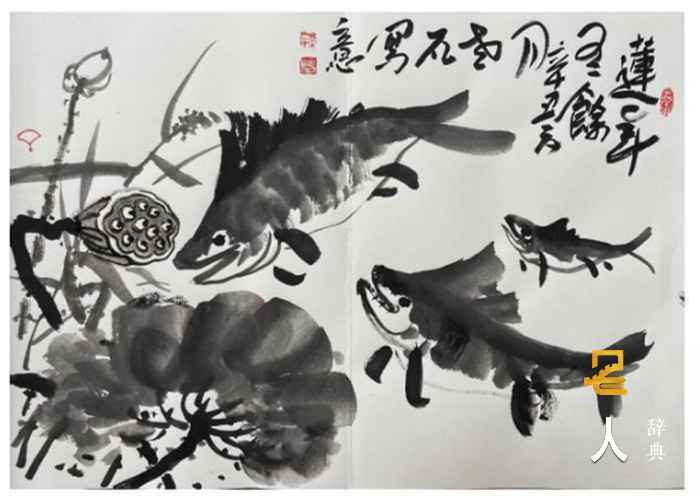 蓮年
有餘
辛丑六
月老石寫意
名人
辞典